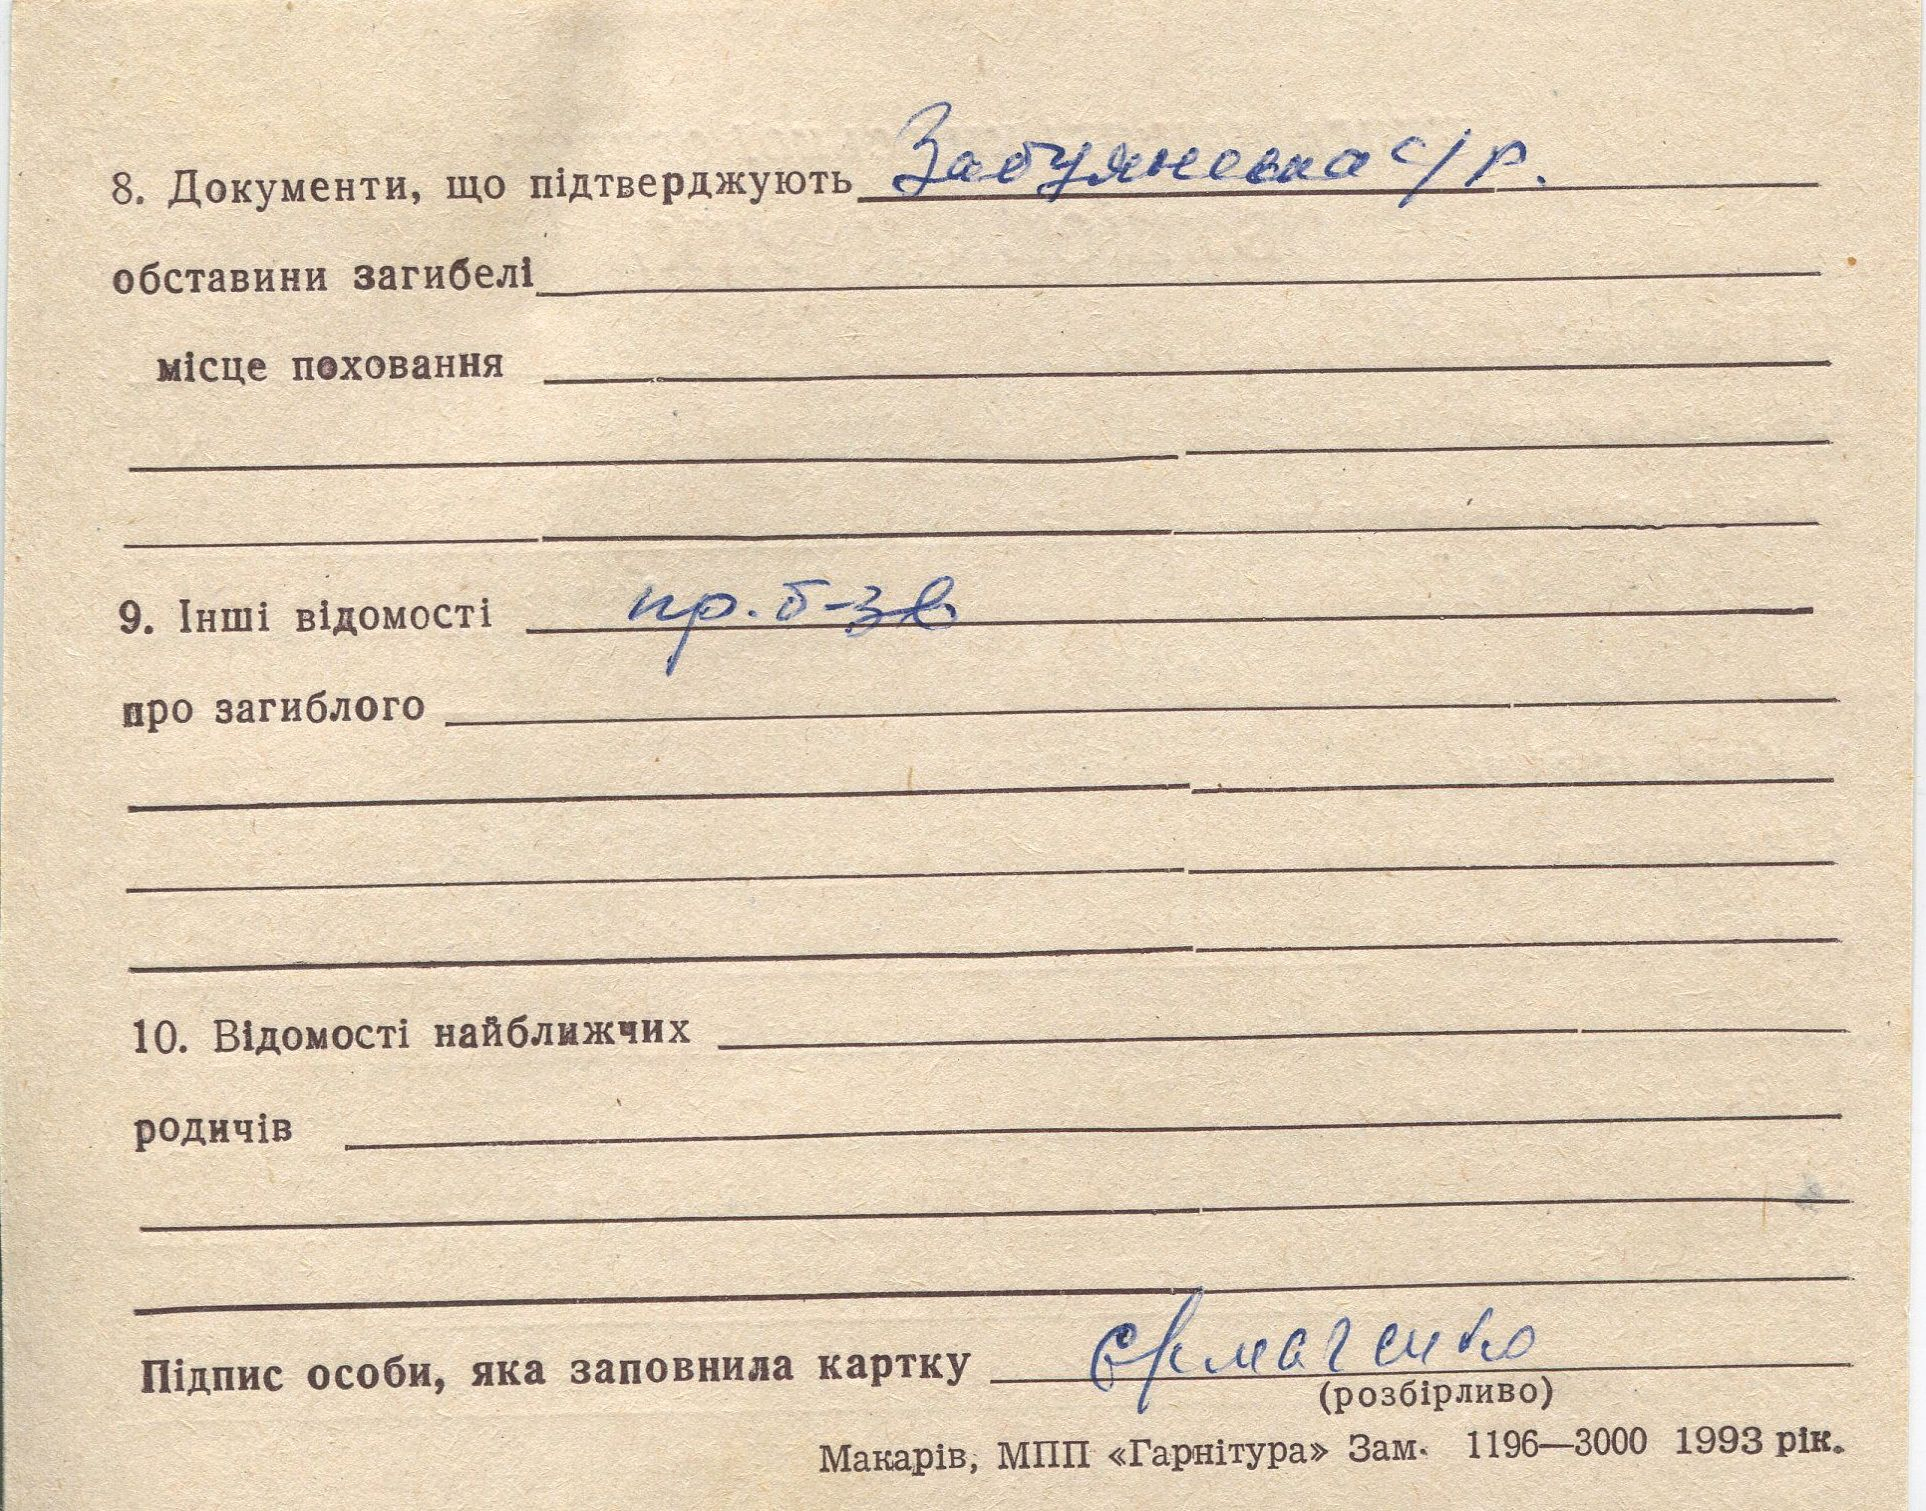 8. Документи, що підтверджують Забуянська с/р.
обставини загибелі
місце поховання
9. Інші відомості пр. б-зв
про загиблого
10. Відомості найближчих
родичів
Підпис особи, яка заповнила картку Єрмаченко
(розбірливо)
Макарів, МПП «Гарнітура» Зам. 1196—3000 1993 рік.